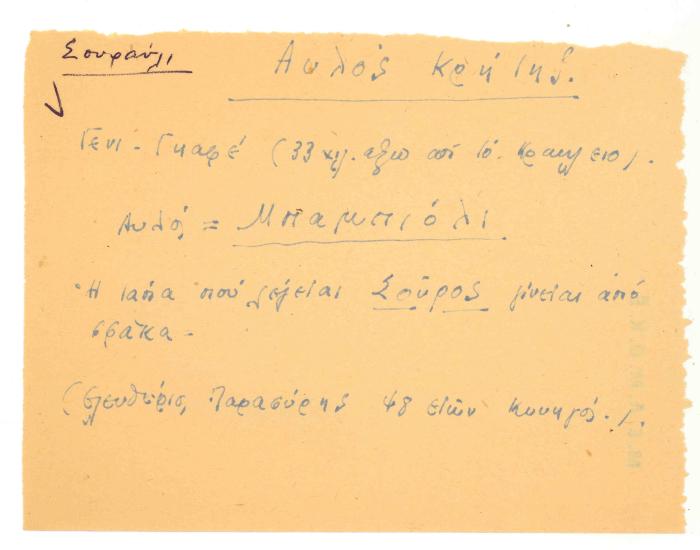 Σουραύλι
Αυλός Κρήτης.
Γενί-Γκαφέ (33 χιλ. έξω από το Ηράκλειο).
Αυλός = Μπαμπιόλι
Ἡ τάπα που λέγεται Σοῦρος γίνεται από
σφάκα -
(Ελευθέριος Παρασύρης 48 ετών Κυνηγός.).